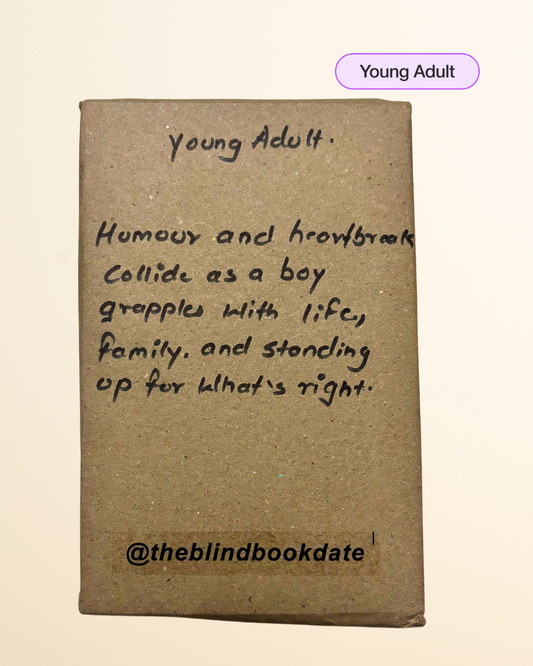 Young Adult
Young Adult.
Humour and heartbreak
collide as a boy
grapples with life,
family. and standing
up for what's right.
@theblindbookdate